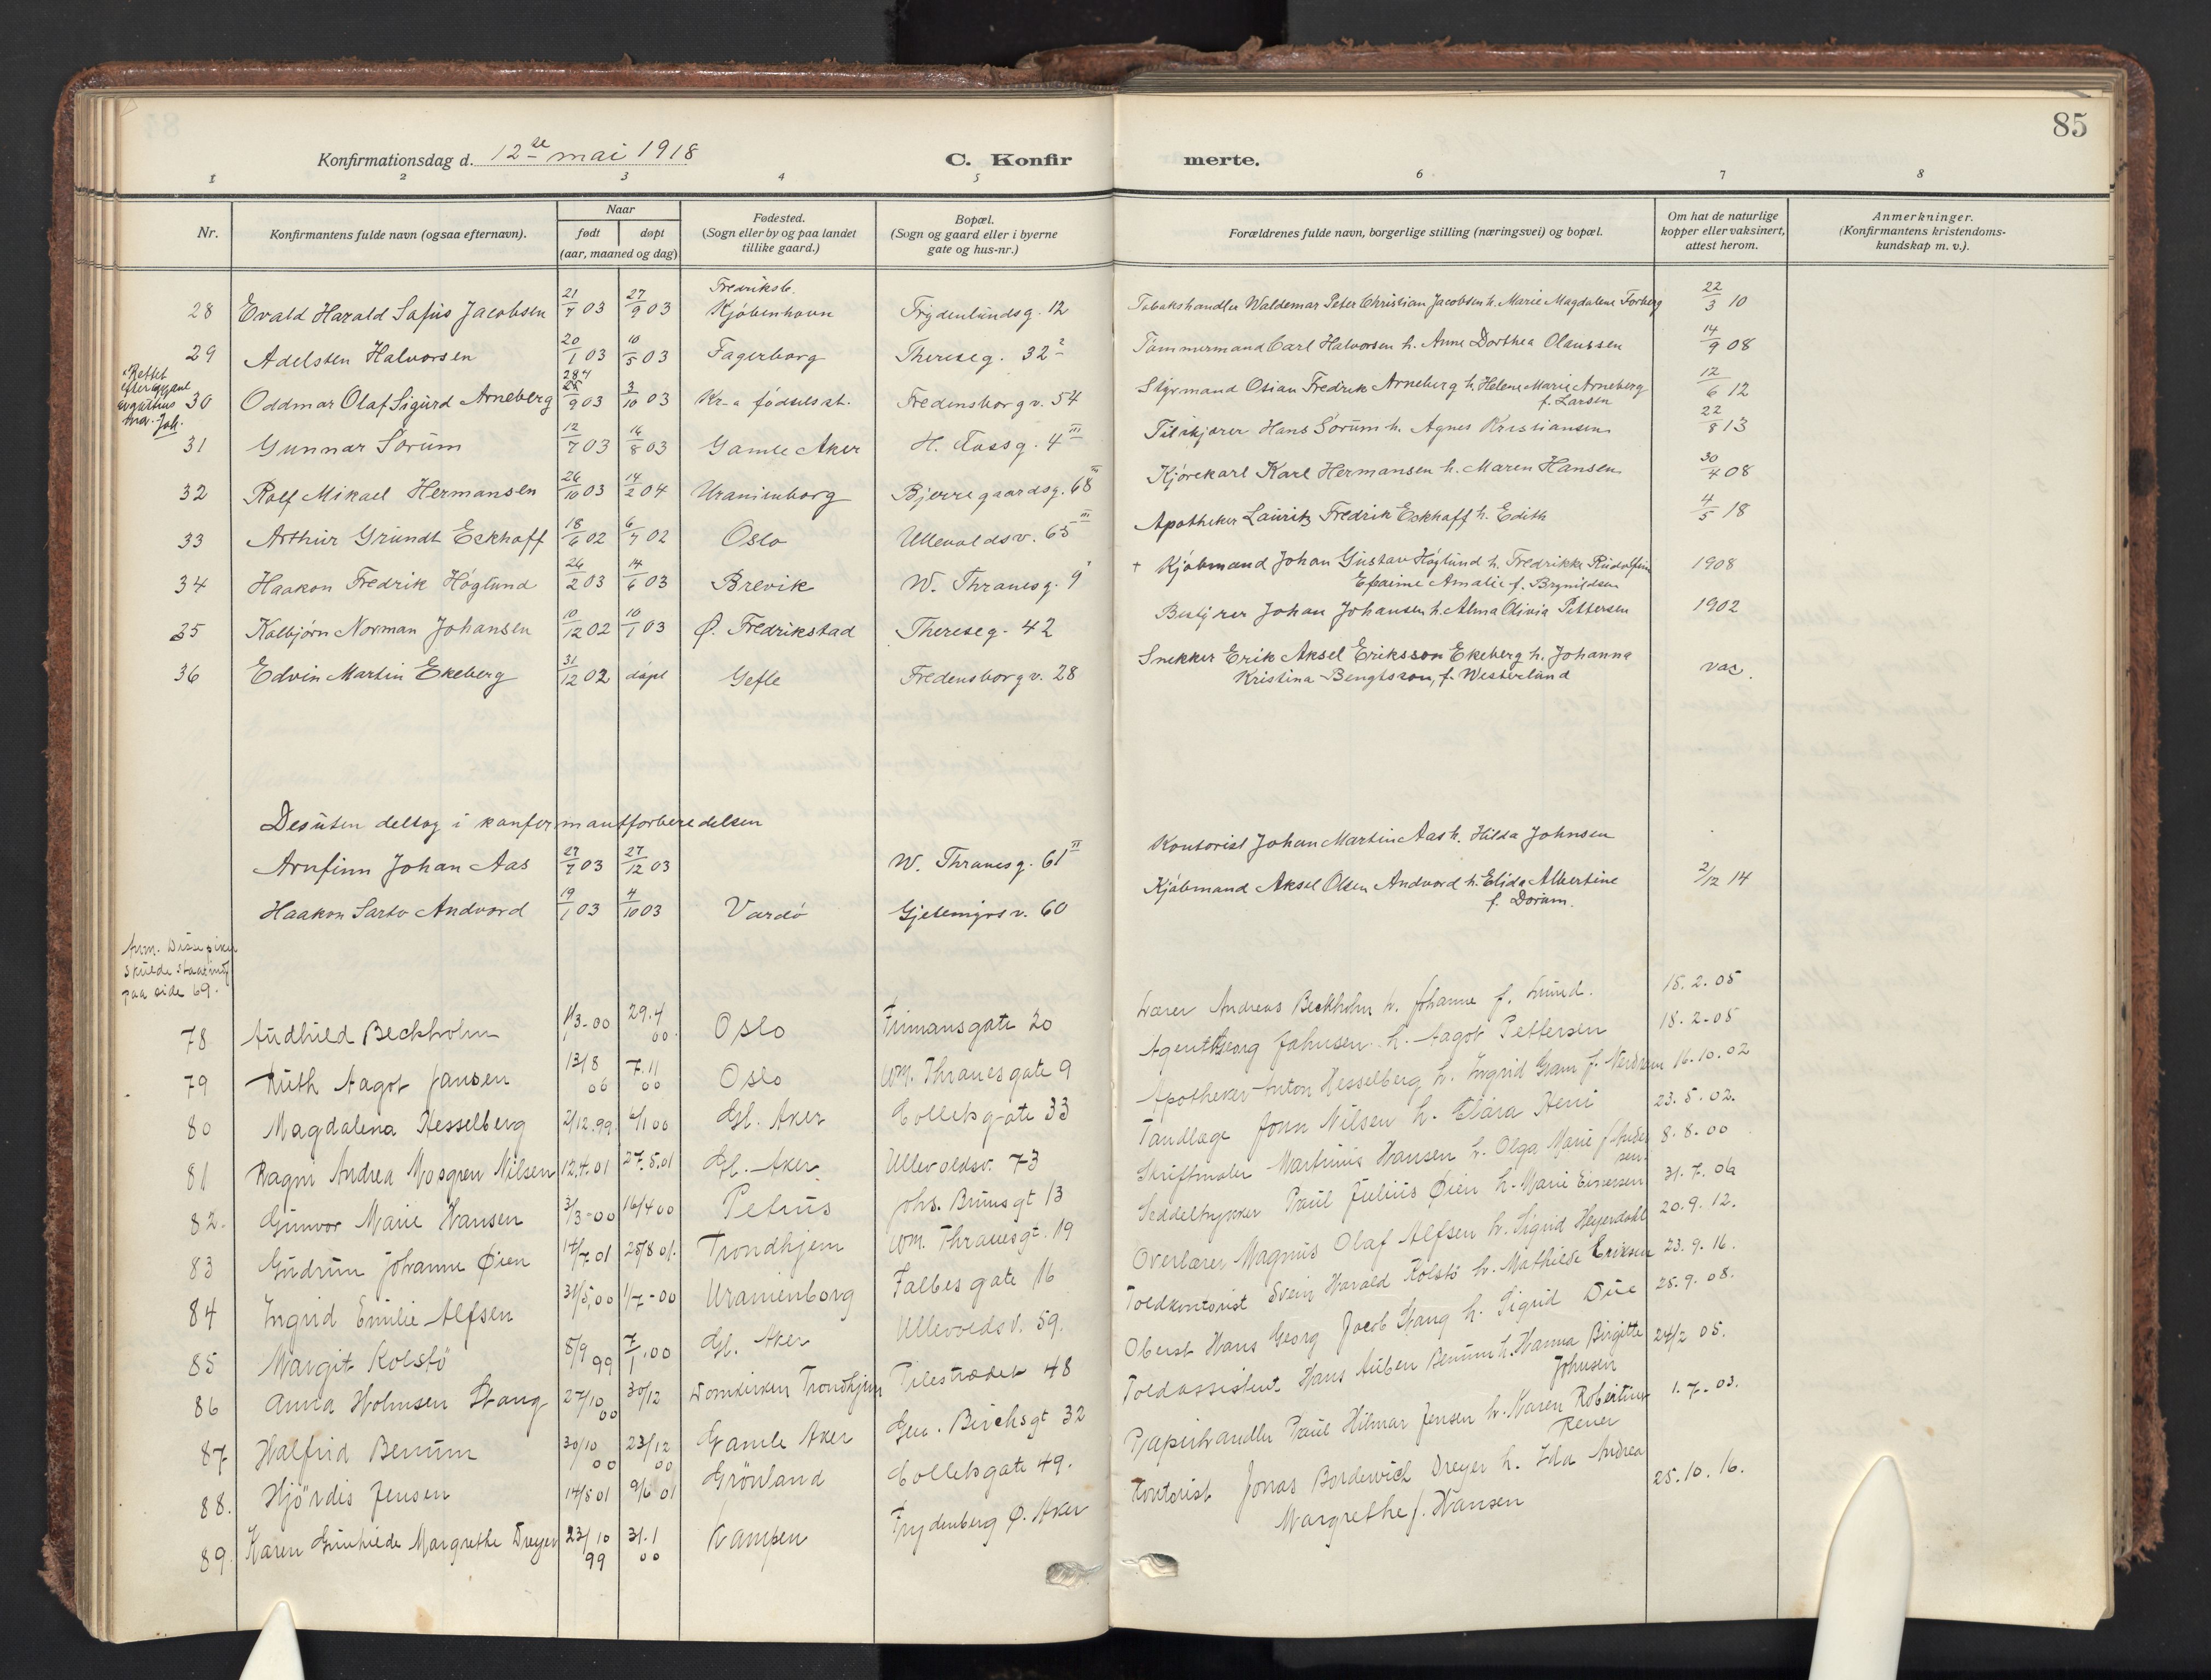 85
Konfirmationsdag d. 12te mai 1918
C. Konfirmerte.
1 2 3 4 5 6 7 8
Nr.
Konfirmantens fulde navn (ogsaa efternavn).
Naar
født døpt
(aar, maaned og dag)
Fødested.
(Sogn eller by og paa landet
tillike gaard.)
Bopæl.
(Sogn og gaard eller i byerne
gate og hus-nr.)
Forældrenes fulde navn, borgerlige stilling (næringsvei) og bopæl.
Om hat de naturlige
kopper eller vaksinert,
attest herom.
Anmerkninger.
(Konfirmantens kristendoms-
kundskap m. v.).
Fredriksb.
28 Evald Harald Safus Jacobsen 21/7 03 27/9 03 Kjøbenhavn Frydenlundsg. 12 Tobakshandler Waldemar Peter Christian Jacobsen h. Marie Magdalene Forberg 22/3 10
29 Adelsten Halvorsen 20/1 03 10/5 03 Fagerborg Thereseg. 32² Tømmermand Carl Halvorsen h. Anne Dorthea Olaussen 14/9 08
Rettet
30 Oddmar Olaf Sigurd Arneberg 9 03 3/10 03 Kr-a fødselsst. Fredensborgv. 54 Styrmand Osian Fredrik Arneberg h. Helene Marie Arneberg 12/6 12
f. Larsen
31 Gunnar Sørum 12/7 03 16/8 03 Gamle Aker H. Aassg. 4 III Tilskjærer Hans Sørum h. Agnes Kristiansen 22/8 13
32 Rolf Mikael Hermansen 26/10 03 14/2 04 Uranienborg Bjerregaardsg. 68 III Kjørekarl Karl Hermansen h. Maren Hansen 30/4 08
33 Arthur Grundt Eckhoff 18/6 02 6/7 02 Oslo Ullevoldsv. 65 III Apotheker Lauritz Fredrik Eckhoff h. Edith 4/5 18
34 Haakon Fredrik Høglund 26/2 03 14/6 03 Brevik W. Thranesg. 9 + Kjøbmand Johan Gustav Høglund h. Fredrikke Rudolfine 1908
Amalie f. Brynildsen
35 Kolbjørn Norman Johansen 10/12 02 10/1 03 Ø. Fredrikstad Thereseg. 42 Bestyrer Johan Johansen h. Alma Olivia Pettersen 1902
36 Edvin Martin Ekeberg 31/12 02 døpt Gefle Fredensborgv. 28 Snekker Erik Aksel Eriksson Ekeberg h. Johanna vac.
Kristina Bengtsson, f. Westerlund
Desuten deltog i konfirmantforberedelsen
Arnfinn Johan Aas 27/7 03 27/12 03 W. Thranesg. 61 II Kontorist Johan Martin Aas h. Hilda Johnsen
Haakon Sartv Andvord 19/1 03 4/10 03 Vardø Gjetemyrsv. 60 Kjøbmand Aksel Olsen Andvord h. Elida Albertine 2/12 14
f. Dorum.
Anm. Disse piker
skulde staa
paa side 69.
78 Audhild Beckholm 1/3-00 29.4 00 Oslo 20 Lærer Andreas Beckholm h. Johanne f. Lund. 15.2.05
79 Ruth Aagot Jansen 13/8 00 7.11 00 Oslo Wm. Thranes gate 9 Agent Georg Johnsen h. Aagot Pettersen 18.2-05
80 Magdalena Hesselberg 2/12.99 6/1 00 Gl. Aker Colletsgate 33 Apotheker Anton Hesselberg h. Ingrid Gram 16.10.02
81 Ragni Andrea Mosgren Nilsen 12.4.01 27.5.01 Gl. Aker Ullevoldsv. 73 Tandlæge John Nilsen h. Clara 23.5.02.
82. Gunvor Marie Hansen 3/3-00 16/4 00 Petrus Johs. Bruns gt 13 Skriftmaler Martinius Hansen h. Olga Marie f. Andersen. 8.8.00
83 Gudrun Johanne Øien 14/7.01 25/8 01. Trondhjem Wm. Thranesgt. 19 Seddeltrykker Paul Julius Øien h. Marie Einersen 31.7.06
84 Ingrid Emilie Alfsen 31/5.00 1/7-00 Uranienborg Falbes gate 16 Overlærer Magnus Olaf Alfsen h. Sigrid Heyerdahl 20.9.12.
85 Margit Kolstö 5/9 99 7/1.00 Gl. Aker Ullevoldsv. 59. Toldkontorist Svein Harald Kolstö h. Mathilde Eriksen 23.9.16.
86 Anna Holmsen Stang 27/10 00 30/12 Domkirken Trondhjem Pilestrædet 48 Oberst Hans Georg Jacob Stang h. Sigrid Due 25.9.08.
87 Halfrid Benum 30/10 00 23/12 00 Gamle Aker Gen. Birchsgt 32 Toldassistent Hans Auben Benum h. Hanna Birgitte 24/2 05.
Johnsen
88. Hjördis Jensen 14/5 01 9/6 01 Grönland Colletsgate 49. Papirhandler Paul Hilmar Jensen h. Karen Robertine 1.7-03.
89. Karen Gunhilde Margrethe Dreyer 23/10 99 31.1 00 Kampen Frydenberg Ø. Aker Kontorist Jonas Bordewich Dreyer h. Ida Andrea 25.10.16.
Margrethe f. Hansen